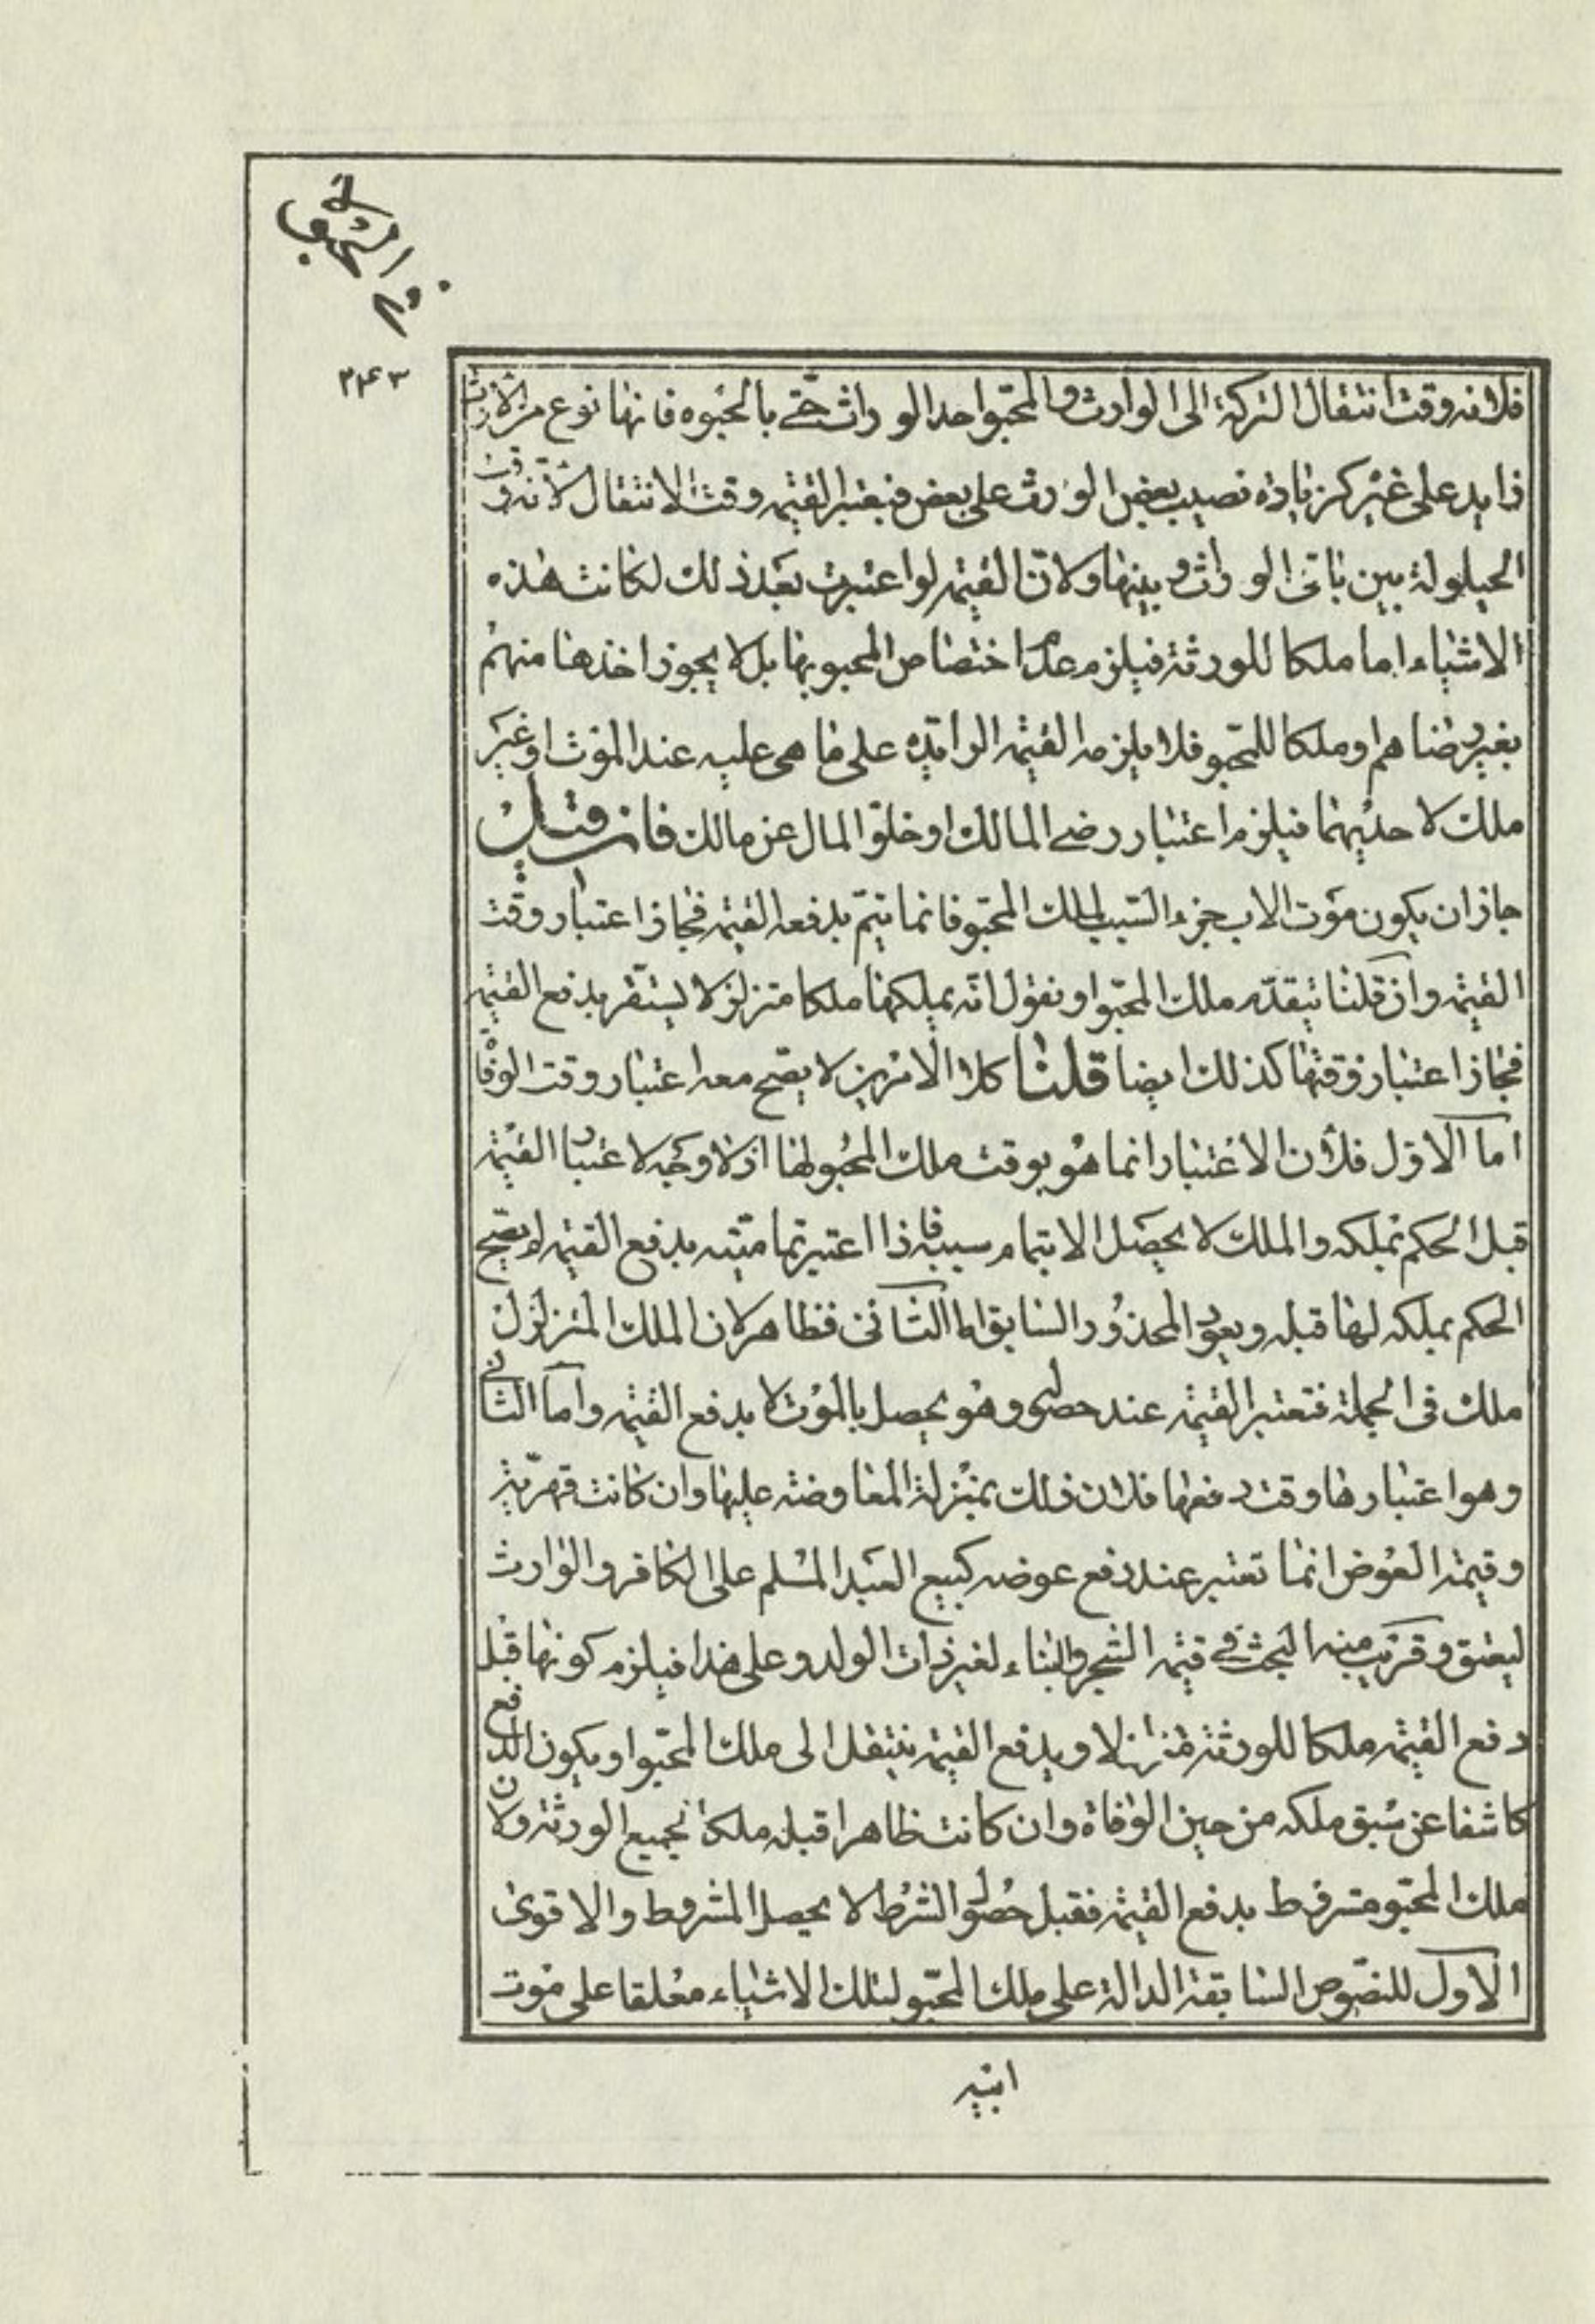 في الحبوة
٢٤٣
فلانه وقت انتقال التركة الى الوارث والمحبو احد الوراث حتى بالحبوه فانها نوع من الارث
زايد على غيره كزيادة نصيب بعض الوراث على بعض فيعتبر القيمه وقت الانتقال لانه وقت
الحيلولة بين باقى الوراث وبينها ولان القيمه لو اعتبرت بعد ذلك لكانت هذه
الاشياء اما ملكا للورثة فيلزم عدم اختصاص المحبو بها بل لا يجوز اخذها منهم
بغير رضاهم او ملكا للمحبو فلا يلزمه القيمه الزايده على ما هى عليه عند الموت او غير
ملك لاحديهما فيلزم اعتبار رضى المالك او خلو المال عن مالك فان قيل
جاز ان يكون موت الاب جزء السبب لملك المحبو فانما يتم بدفعه القيمه فجاز اعتبار وقت
القيمه وان قلنا بتقدم ملك المحبو او نقول انه يملكها ملكا متزلزلا يستقر بدفع القيمه
فجاز اعتبار وقتها كذلك ايضا قلنا كلا الامرين لا يصح معه اعتبار وقت الوفا
اما الاول فلان الاعتبار انما هو بوقت ملك المحبو لها اذ لا وجه لاعتبار القيمه
قبل الحكم بملكه والملك لا يحصل الا بتمام سببه فاذا اعتبر تماميته بدفع القيمه لم يصح
الحكم بملكه لها قبله ويعود المحذور السابق اما الثانى فظاهر لان الملك المتزلزل
ملك فى الجملة فتعتبر القيمه عند حصوله وهو يحصل بالموت لا بدفع القيمه واما الثانى
وهو اعتبارها وقت دفعها فلان ذلك بمنزلة المعاوضه عليها وان كانت قهرية
وقيمة العوض انما تعتبر عند دفع عوضه كبيع العبد المسلم على الكافر والوارث
ليعتق وقريب منه البحث فى قيمه الشجر والبناء لغير ذات الولد وعلى هذا فيلزم كونها قبل
دفع القيمه ملكا للورثة متزلزلا وبدفع القيمه ينتقل الى ملك المحبو او يكون الدفع
كاشفا عن سبق ملكه من حين الوفاة وان كانت ظاهرا قبله ملكا لجميع الورثة ولان
ملك المحبو مشروط بدفع القيمه فقبل حصول الشرط لا يحصل المشروط والاقوى
الاول للنصوص السابقة الدالة على ملك المحبو لتلك الاشياء معلقا على موت
ابيه